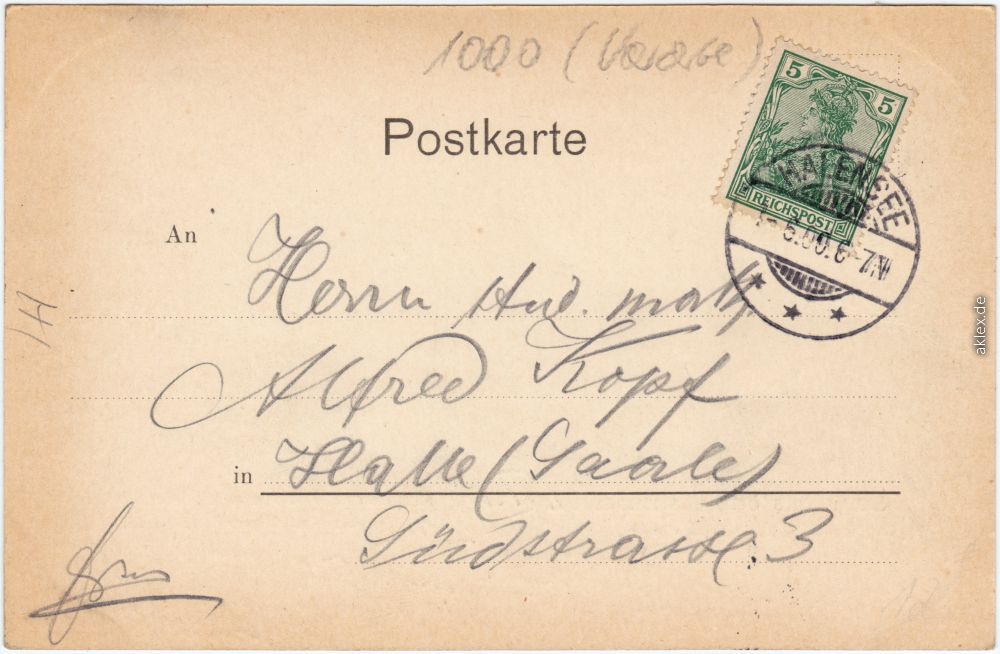 1000 (
Postkarte
5 5
REICHSPOST
HALENSEE
5.00.6-7N
An
Herrn stud. math.
Alfred Kopf
in Halle (Saale)
Südstrasse 3
aklex.de